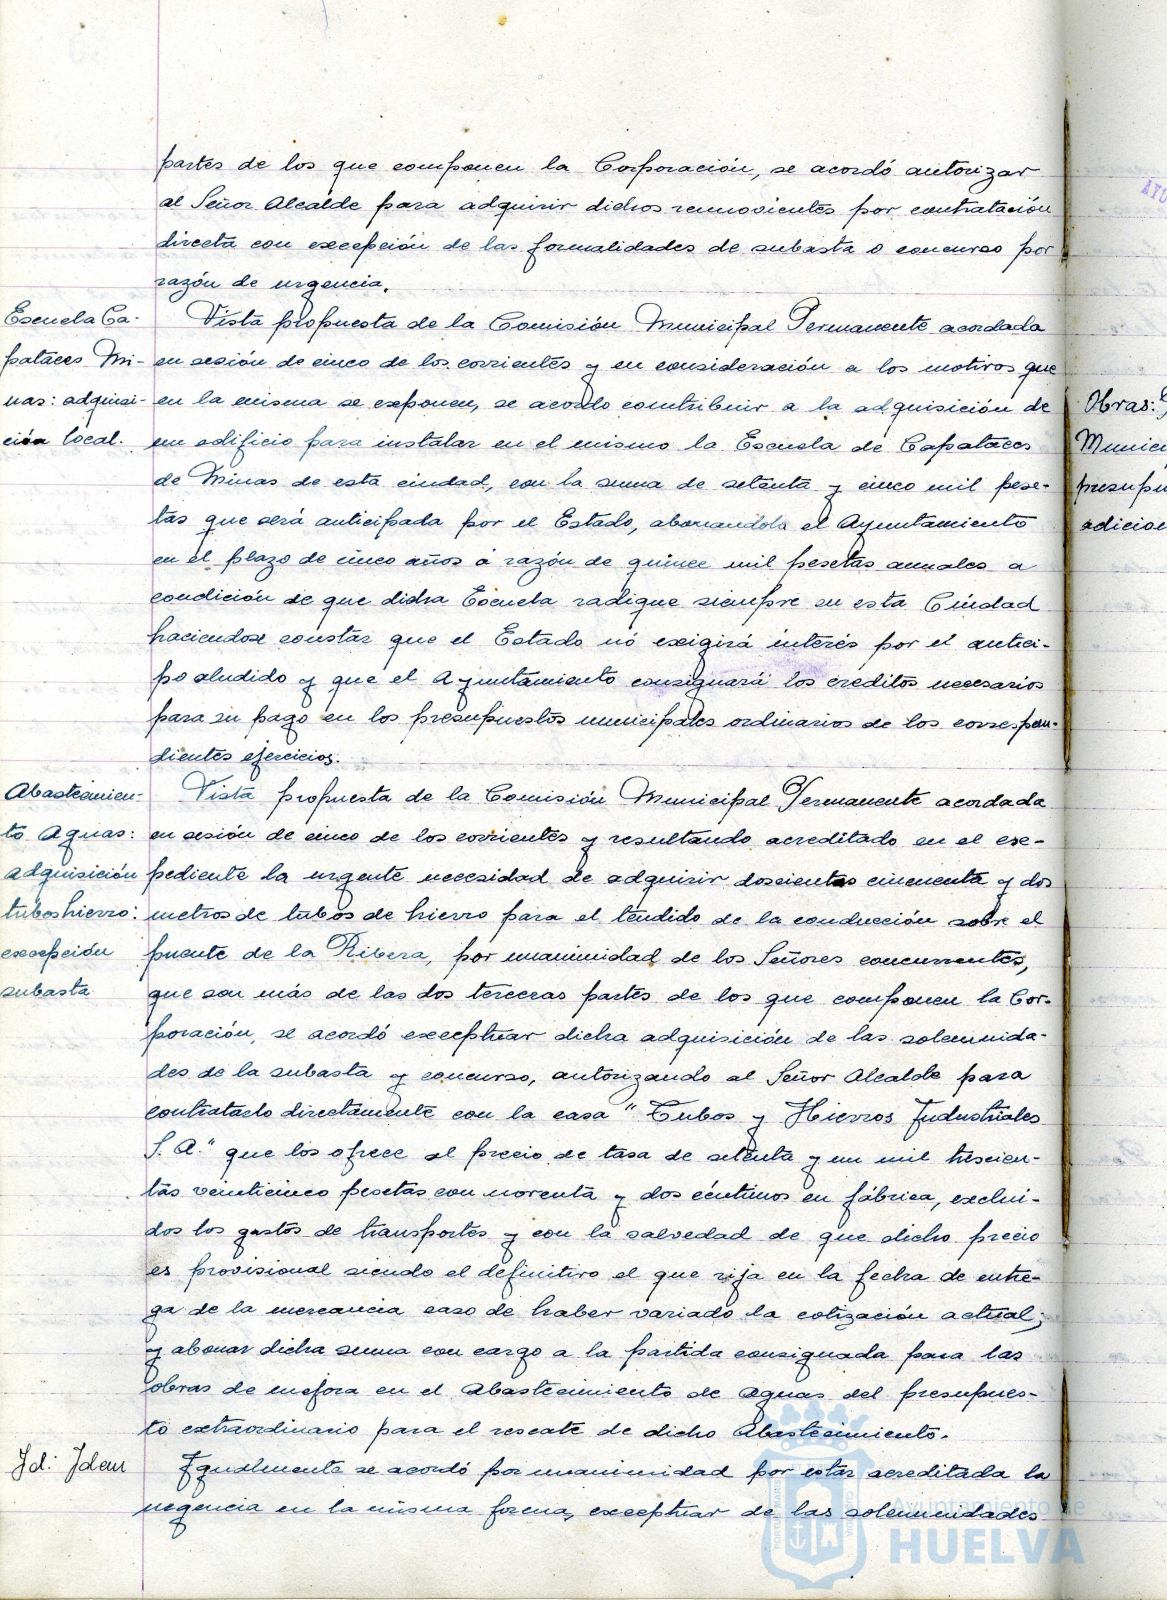 partes de los que componen la Corporación, se acordó autorizar
al Señor Alcalde para adquirir dichos removientes por contratación
directa con excepción de las formalidades de subasta o concurso por
razón de urgencia.
Escuela Ca-
pataces Mi-
nas: adquisi-
ción local.
Vista propuesta de la Comisión Municipal Permanente acordada
en sesión de cinco de los corrientes y en consideración a los motivos que
en la misma se exponen, se acordo contribuir a la adquisición de
un edificio para instalar en el mismo la Escuela de Capataces
de Minas de esta ciudad, con la suma de setenta y cinco mil pese-
tas que será anticipada por el Estado, abonandola el Ayuntamiento
en el plazo de cinco años á razón de quince mil pesetas anuales a
condición de que dicha Escuela radique siempre en esta Ciudad
haciendose constar que el Estado nó exigirá interés por el antici-
po aludido y que el Ayuntamiento consignará los créditos necesarios
para su pago en los presupuestos municipales ordinarios de los correspon-
dientes ejercicios.
Abastecimien-
to Aguas:
adquisición
tubos hierro:
excepción
subasta
Vista propuesta de la Comisión Municipal Permanente acordada
en sesión de cinco de los corrientes y resultando acreditado en el ex-
pediente la urgente necesidad de adquirir doscientos cincuenta y dos
metros de tubos de hierro para el tendido de la conducción sobre el
puente de la Ribera, por unanimidad de los Señores concurrentes,
que son más de las dos terceras partes de los que componen la Cor-
poración, se acordó exceptuar dicha adquisición de las solemnida-
des de la subasta y concurso, autorizando al Señor Alcalde para
contratarlo directamente con la casa "Tubos y Hierros Industriales
S. A." que los ofrece al precio de tasa de setenta y un mil trescien-
tas veinticinco pesetas con noventa y dos céntimos en fábrica, exclui-
dos los gastos de transportes y con la salvedad de que dicho precio
es provisional siendo el definitivo el que rija en la fecha de entre-
ga de la mercancia caso de haber variado la cotización actual;
y abonar dicha suma con cargo a la partida consignada para las
obras de mejora en el Abastecimiento de Aguas del presupues-
to extraordinario para el rescate de dicho Abastecimiento.
Id: Idem
Igualmente se acordó por unanimidad por estar acreditada la
urgencia en la misma forma, exceptuar de las solemnidades
Obras:
Munici
presupu
adicion
Ayuntamiento de
HUELVA